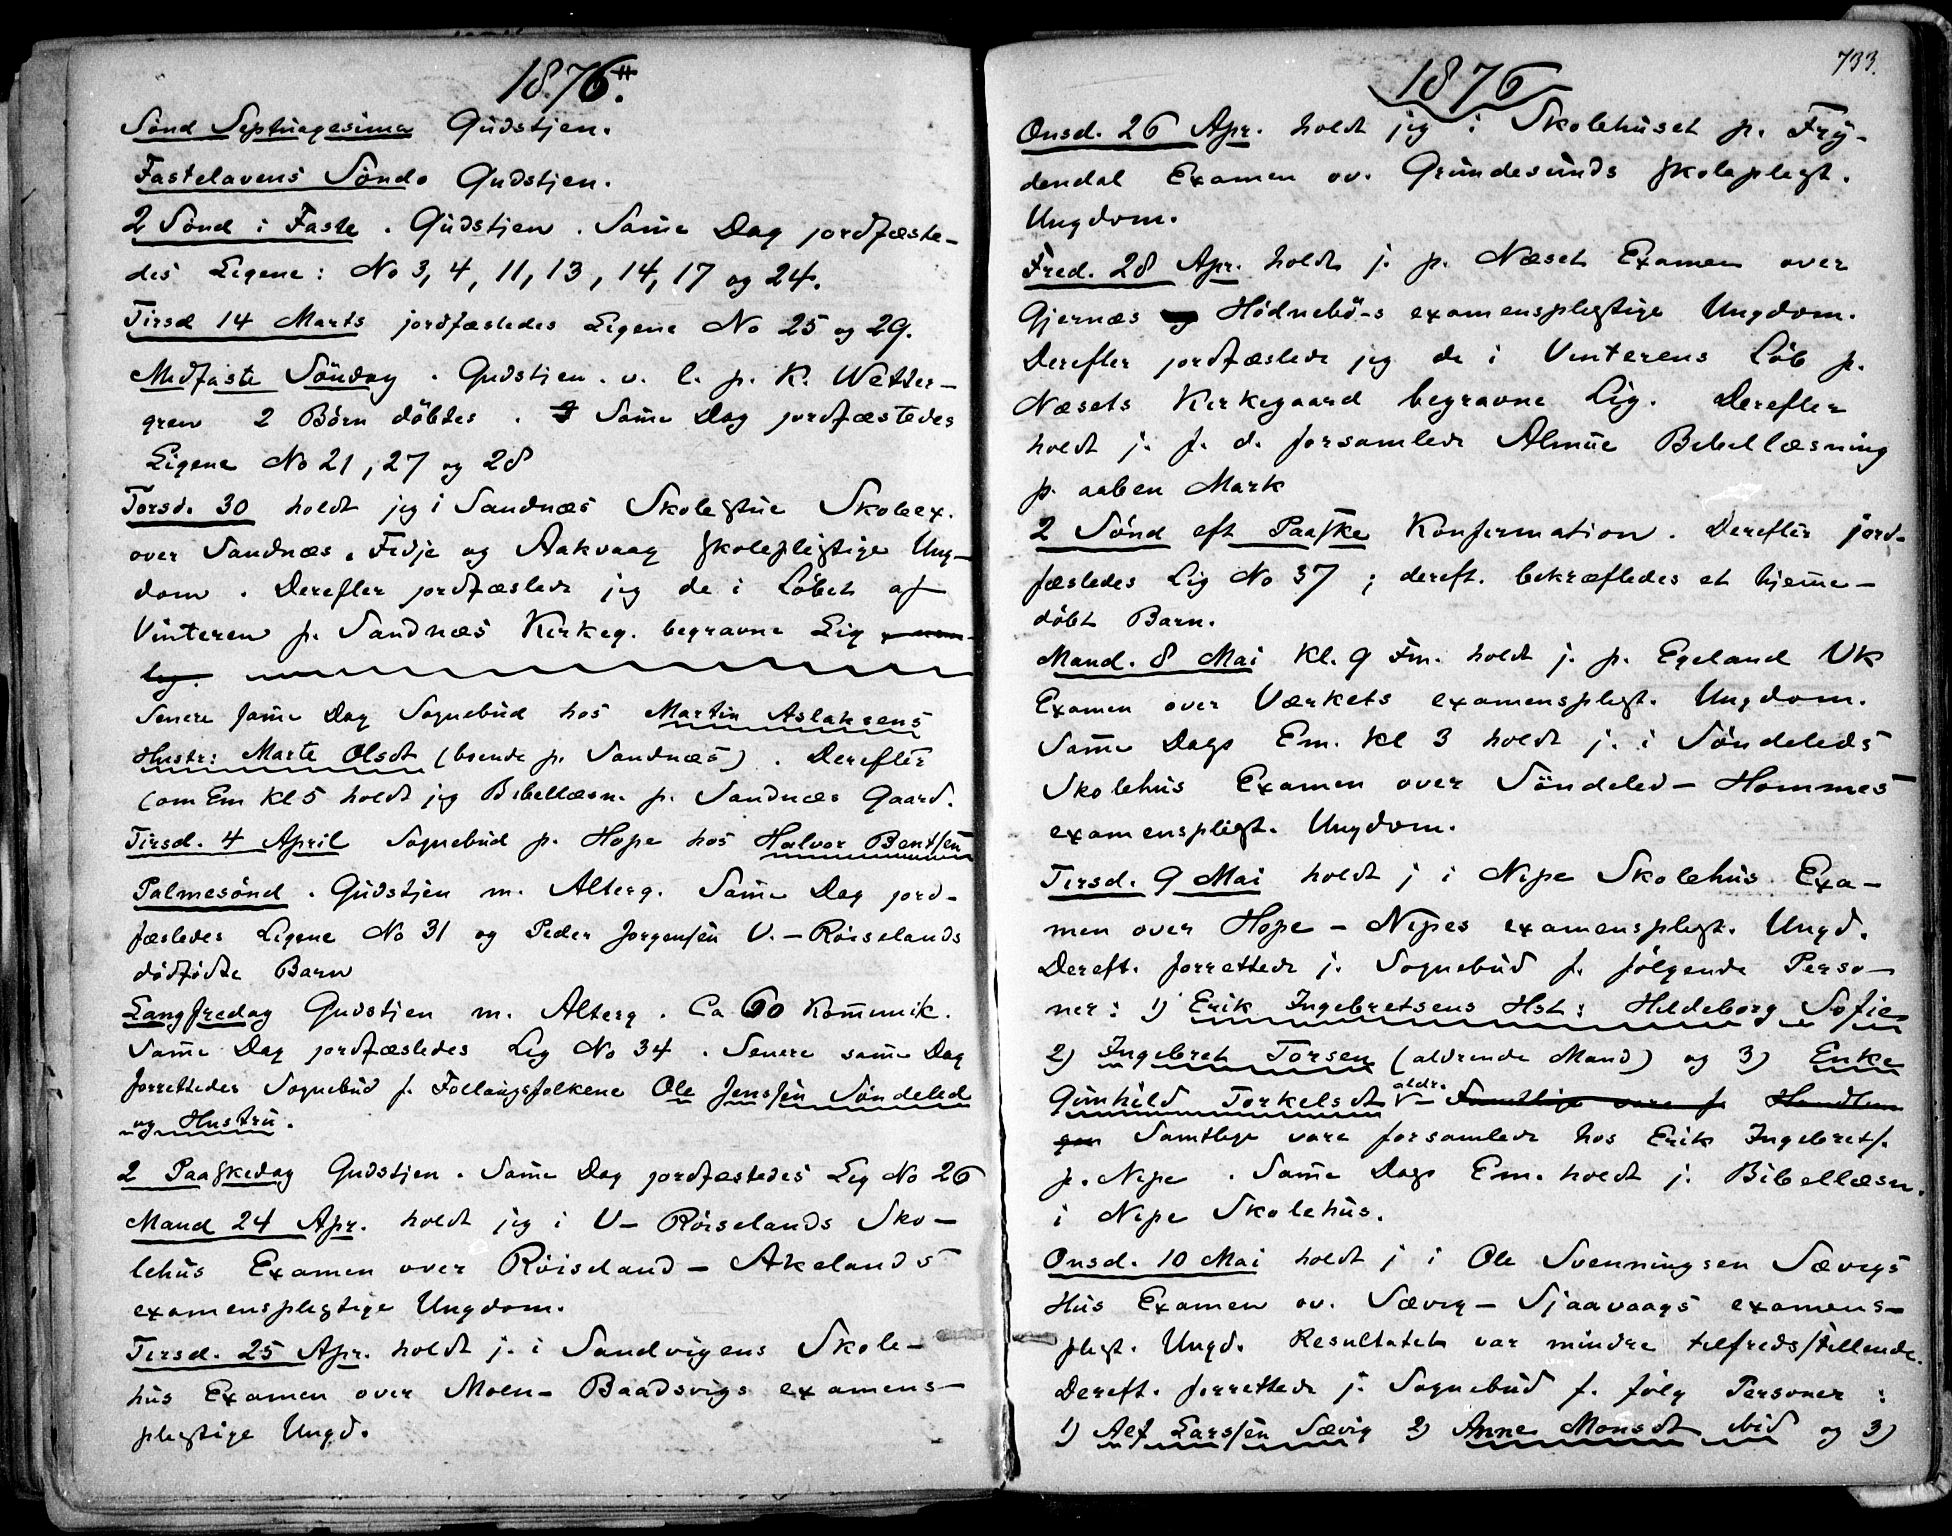 1876.
Sönd Septuagesima Gudstjen.
Fastelavens Sönd. Gudstjen.
2 Sönd i Faste. Gudstjen. Same Dag jordfæste-
des Ligene: No 3, 4, 11, 13, 14, 17 og 24.
Tirsd 14 Marts jordfæstedes Ligene No 25 og 29.
Midfaste Söndag. Gudstjen. v. C. p. K. Wetter-
gren 2 Börn döbtes. Same Dag jordfæstedes
Ligene No 21, 27 og 28
Torsd. 30 holdt jeg i Sandnæs Skolestue Skoleex.
over Sandnæs, Fidje og Aakvaag skolepligtige Ung-
dom. Derefter jordfæstede jeg de i Löbet af
Vinteren p. Sandnæs Kirkeg. begravne Lig nem-
lig.
Senere same Dag Sognebud hos Martin Aslaksens
Hustr: Marte Olsdt (boende p. Sandnæs). Derefter
(om Em Kl 5 holdt jeg Bibellæsn. p. Sandnæs Gaard.
Tirsd. 4 April Sognebud p. Hope hos Halvor Bentsen
Palmesönd. Gudstjen m. Alterg. Same Dag jord-
fæstedes Ligene No 31 og Peder Jorgensen U.-Röiselands
dödfödte Barn
Langfredag Gudstjen m. Alterg. Ca 60 Komunik.
Same Dag jordfæstedes Lig No 34. Senere same Dag
forrettedes Sognebud f. Follaugsfolkene Ole Jenssen Söndeled
og Hustru.
2 Paaskedag Gudstjen. Same Dag jordfæstedes Lig No 26
Mand 24 Apr. holdt jeg i U- Röiselands Sko-
lehus Examen over Röiseland - Akelands
examenspligtige Ungdom.
Tirsd. 25 Apr. holdt j. i Sandvigens Skole-
hus Examen over Moen- Baadsvigs examens-
pligtige Ungd.
733.
1876
Onsd. 26 Apr. holdt jeg i Skolehuset p. Fry-
dendal Examen ov. Grundesunds skolepligt.
Ungdom.
Fred. 28 Apr. holdt j. p. Næset Examen over
Gjernæs og Hödnebö-s examenspligtige Ungdom.
Derefter jordfæstede jeg de i Vinterens Löb p.
Næsets Kirkegaard begravne Lig. Derefter
holdt j. f. d. forsamlede Almue Bibellæsning
p. aaben Mark
2 Sönd eft Paaske Konfirmation. Derefter jord-
fæstedes Lig No 37; dereft. bekræftedes et hjeme-
döbt Barn.
Mand. 8 Mai Kl. 9 Fm. holdt j. p. Egeland Vk
Examen over Værkets examenspligt. Ungdom.
Same Dags Em. Kl 3 holdt j. i Söndeleds
Skolehus Examen over Söndeled- Hommes
examenspligt. Ungdom.
Tirsd. 9 Mai holdt j i Nipe Skolehus Exa-
men over Hope - Nipes examenspligt. Ungd.
Dereft. forrettede j. Sognebud f. fölgende Perso-
ner: 1) Erik Ingebretsens Hst: Hildeborg Sofie
2) Ingebret Torsen (aldrende Mand) og 3) Enke
Gunhild Torkelsdt aldr. Samtlige vare f Handlin
gen Samtlige vare forsamlede hos Erik Ingebrets.
p. Nipe. Same Dags Em. holdt j. Bibellæsn.
i Nipe Skolehus.
Onsd. 10 Mai holdt j i Ole Svenningsen Sævigs
Hus Examen ov. Sævig- Sjaavaags examens-
pligt. Ungd. Resultatet var mindre tilfredsstillende.
Dereft. forrettede j. Sognebud f. fölg Personer:
1) Alf Larssen Sævig 2) Anne Monsdt ibid og 3)